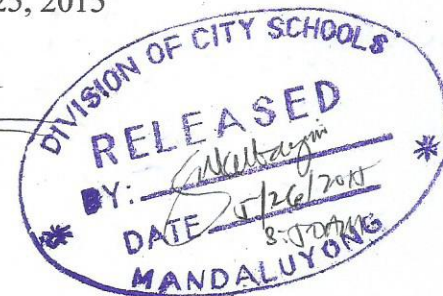 25, 2015
DIVISION OF CITY SCHOOLS
RELEASED
BY:
DATE 5/26/2015
MANDALUYONG